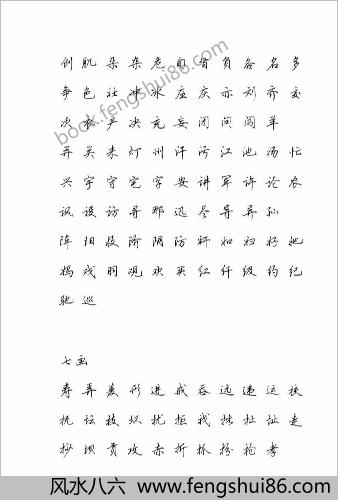 创 肌 朵 杂 危 旬 旨 负 各 名 多
争 色 壮 冲 冰 庄 庆 亦 刘 齐 交
次 衣 产 决 充 妄 闭 问 闯 羊
并 关 米 灯 州 汗 污 江 池 汤 忙
兴 宇 守 宅 字 安 讲 军 许 论 农
讽 设 访 寻 那 迅 尽 导 异 孙
阵 阳 收 阶 阴 防 奸 如 妇 好 她
妈 戏 羽 观 欢 买 红 纤 级 约 纪
驰 巡
七画
寿 弄 麦 形 进 戒 吞 远 违 运 扶
抚 坛 技 坏 扰 拒 找 批 扯 址 走
抄 坝 贡 攻 赤 折 抓 扮 抢 考
book.fengshui86.com
风水八六 www.fengshui86.com